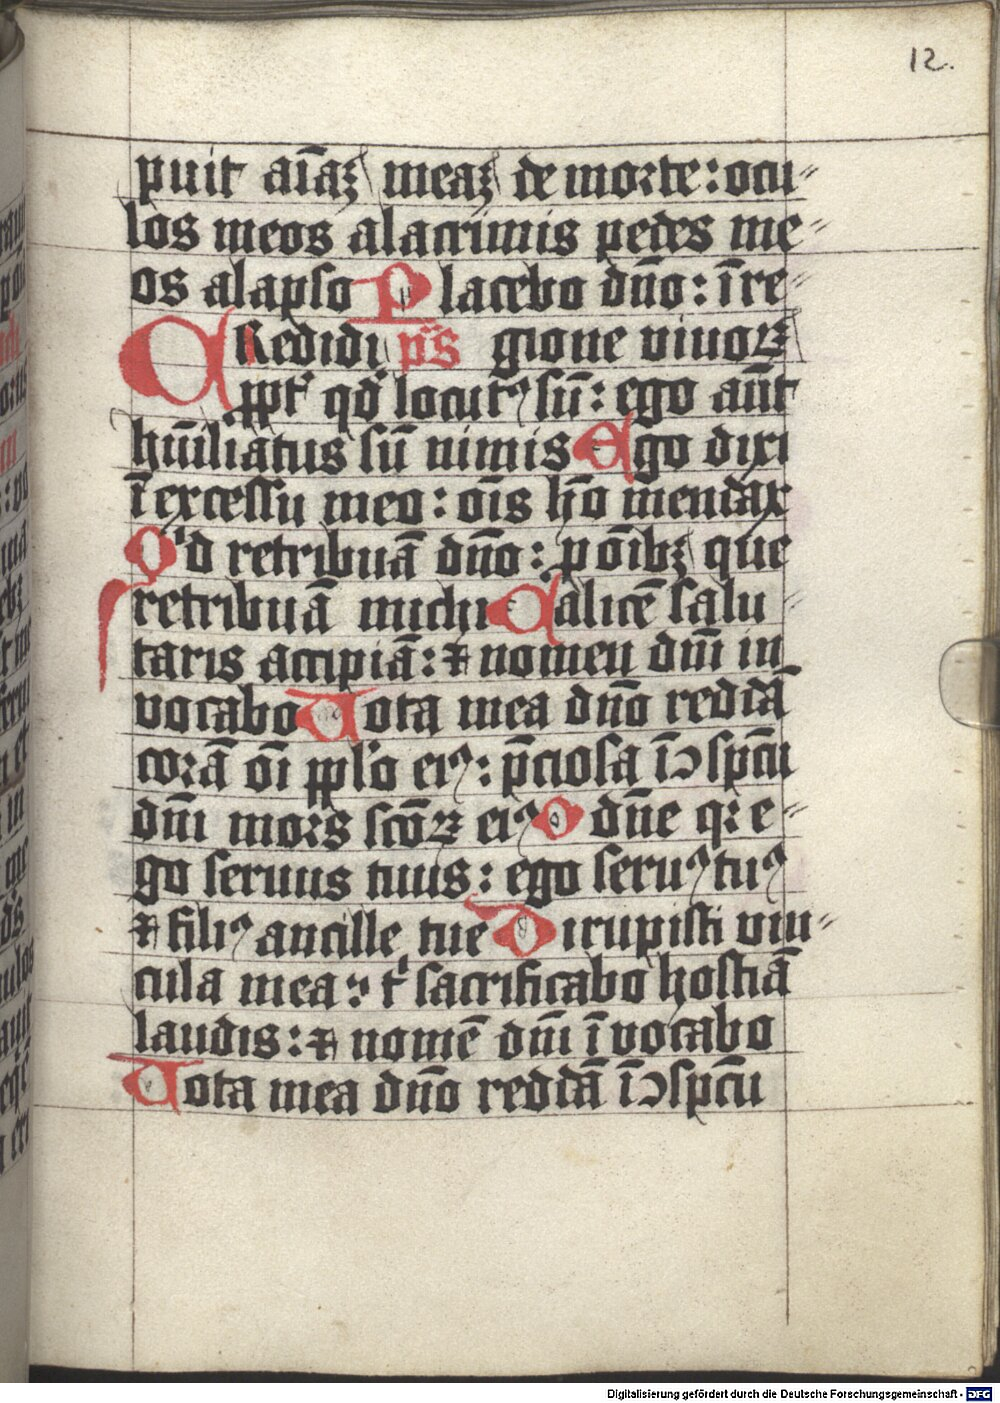 12.
puit aı̄aꝫ meaꝫ de morte: ocu⸗
los meos a lacrimis pedes me⸗
os a lapso Placebo dn̄o: ī re⸗
CRedidi ps̄ gione viuoꝝ
ꝓpt̕ qd̕ locutꝰ sū: ego aūt
hūiliatus sū nimis Ego dixi
ī excessu meo: oı̄s hō mendax
Qͥd retribuā dn̄o: p oı̄bꝫ que
retribuā michi Calicē salu⸗
taris accipiā: ⁊ nomen dn̄i in
vocabo Vota mea dn̄o reddā
corā oı̄ ppl̕o eiꝰ: p̄ciosa ī ↄspc̄u
dn̄i mors sc̄oꝝ eiꝰ O dn̄e qꝛ e⸗
go seruus tuus: ego seruꝰ tuꝰ
⁊ filiꝰ ancille tue Dirupisti vin⸗
cula mea: t̕ sacrificabo hostiā
laudis: ⁊ nomē dn̄i īvocabo
Vota mea dn̄o reddā ī ↄspc̄u
Digitalisierung gefördert durch die Deutsche Forschungsgemeinschaft - DFG